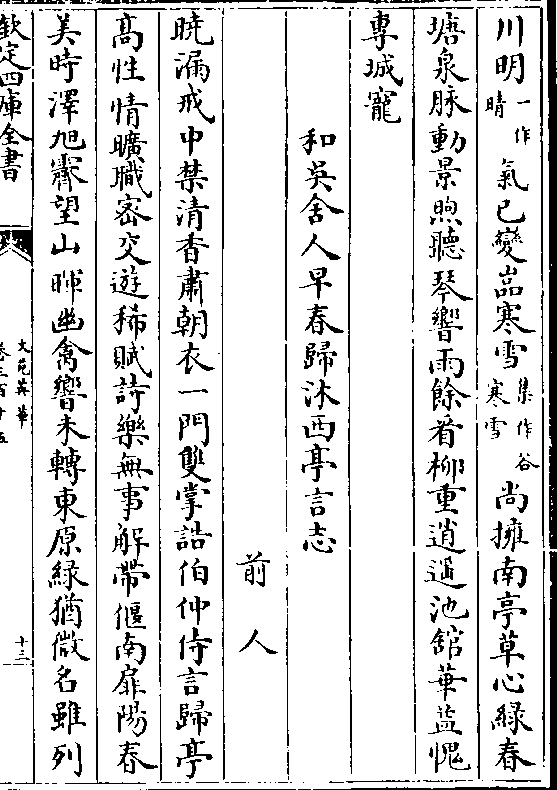 川明一作晴氣已變嵓寒雪集作谷寒雪尚擁南亭草心緑春
塘泉脉動景煦聽琴響雨餘看栁重逍遥池舘華益愧
専城寵
和吳舍人早春歸沐西亭言志
前人
曉漏戒中禁清香肅朝衣一門雙掌誥伯仲侍言歸亭
髙性情曠職宻交遊稀賦詩樂無事解帶偃南扉陽春
美時澤旭霽望山暉幽禽響未轉東原緑猶微名雖列
欽定四庫全書
文苑英華
卷三百十五
十三